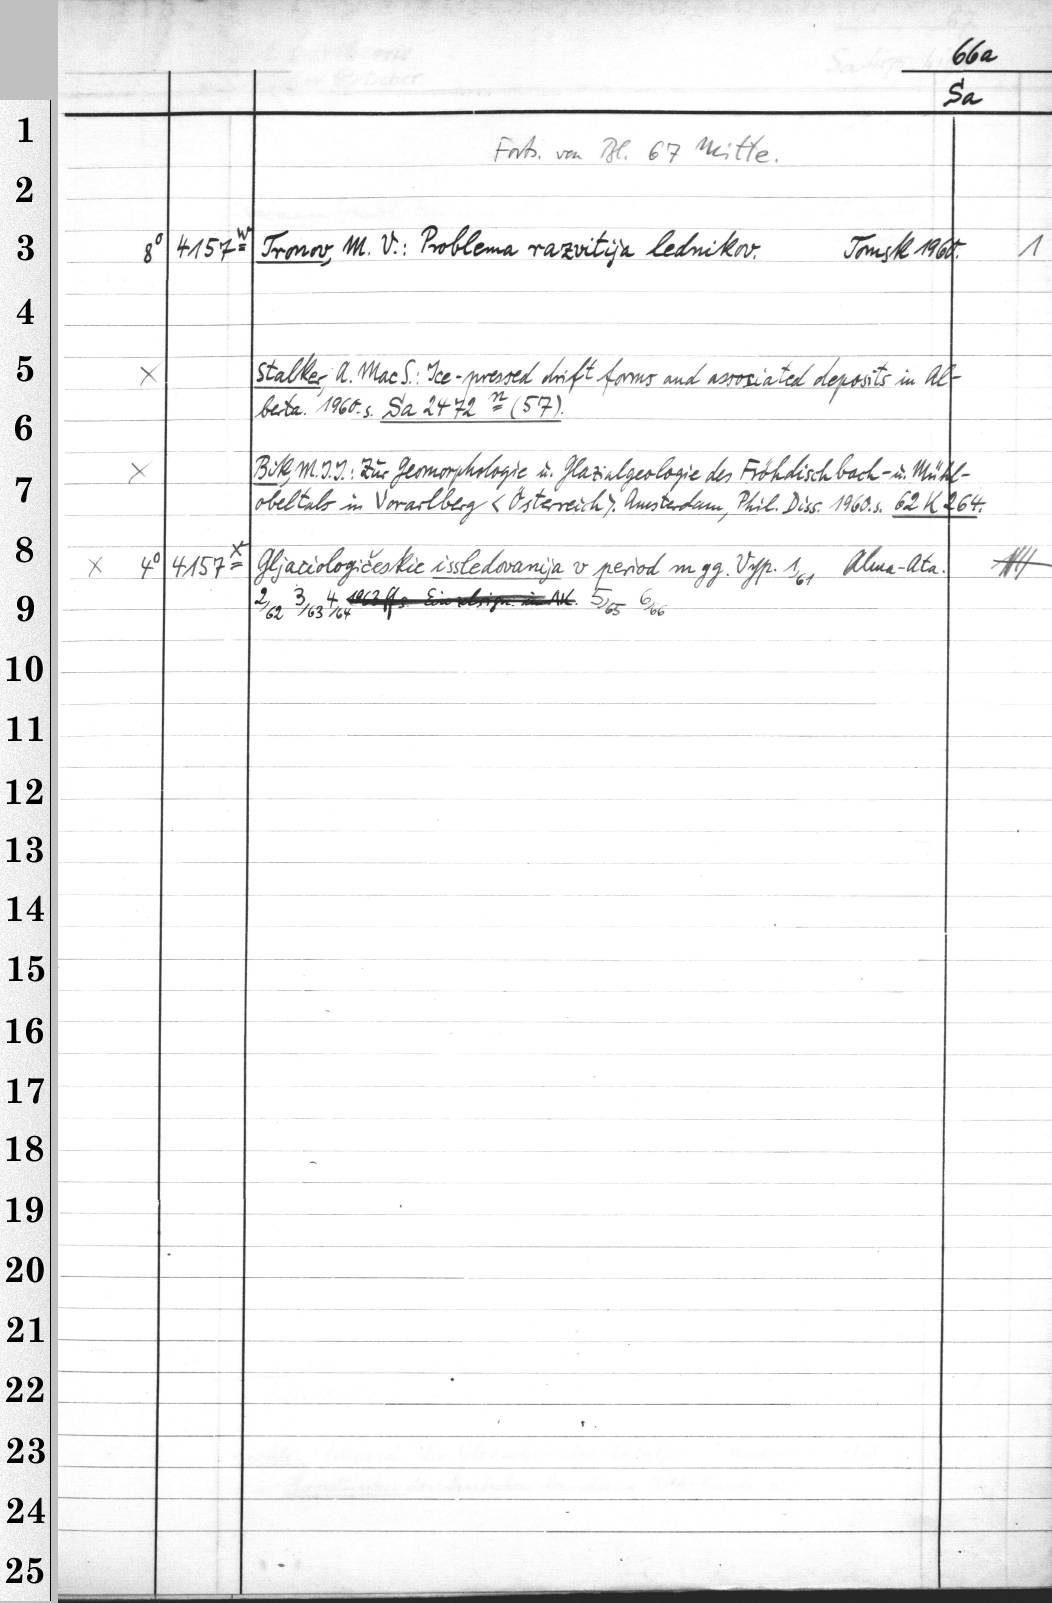 66a
Sa
1
Forts. von Bl. 67 Mitte.
2
3 8° 4157 w Tronov, M. V.: Problema razvitija lednikov. Tomsk 1960. 1
4
5 × Stalker, A. Mac S.: Ice-pressed drift forms and associated deposits in Al-
berta. 1960. s. Sa 2472 n (57).
6
× Bik, M. J. J.: Zur Geomorphologie u. Glazialgeologie des Fröhdischbach- u. Mühl-
7 obeltals in Vorarlberg <Österreich>. Amsterdam, Phil. Diss. 1960. s. 62 K 264.
8 × 4° 4157 x Gljaciologičeskie issledovanija v period m gg. Vyp. 1/61 Alma-Ata.
9 2/62 3/63 4/64 1963 ff s. Einzelsign. in AK. 5/65 6/66
10
11
12
13
14
15
16
17
18
19
20
21
22
23
24
25